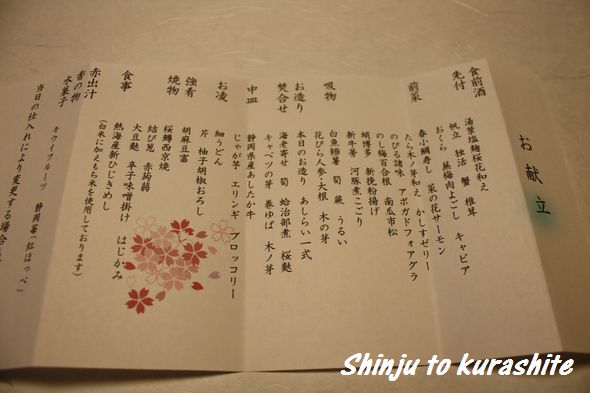 お献立
食前酒
先付
湯葉塩麹桜花和え
帆立 独活 蟹 椎茸
おくら 蒸梅肉よごし キャビア
前菜
春小鯛寿し 菜の花サーモン
たら木ノ芽和え かしすゼリー
のびる諸味 アボガドフォアグラ
のし梅百合根 南瓜市松
蛸博多 新挽粉揚げ
新牛蒡 河豚煮こごり
吸物
白魚糝薯 筍 蕨 うるい
花びら人参・大根 木の芽
お造り
本日のお造り あしらい一式
焚合せ
海老寄せ 筍 蛤治部煮 桜麩
キャベツの芽 巻ゆば 木ノ芽
中皿
静岡県産あしたか牛
じゃが芋 エリンギ ブロッコリー
お凌
細うどん
芹 柚子胡椒おろし
強肴
胡麻豆富
焼物
桜鱒西京焼
結び葱 赤蒟蒻
大豆麩 辛子味噌掛け はじかみ
食事
熱海産新ひじきめし
(白米に加えもち米を使用しております)
赤出汁
香の物
水菓子
キウイフルーツ 静岡苺「紅ほっぺ」
当日の仕入れにより変更する場合
Shinju to kurashite